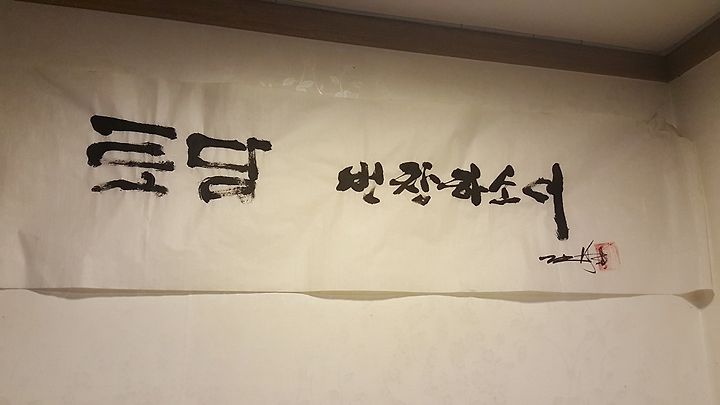 토담 번창하소서